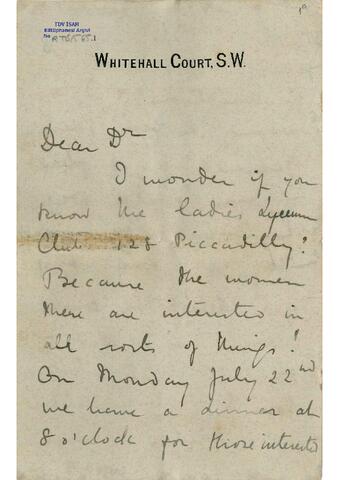 TDV İSAM
Kütüphanesi Arşivi
No RTB/565.1
WHITEHALL COURT, S.W.
Dear Dr
I wonder if you
know the ladies Lyceum
Club 128 Piccadilly?
Because the women
there are interested in
all sorts of things!
On Monday July 22nd
we have a dinner at
8 o'clock for those interested